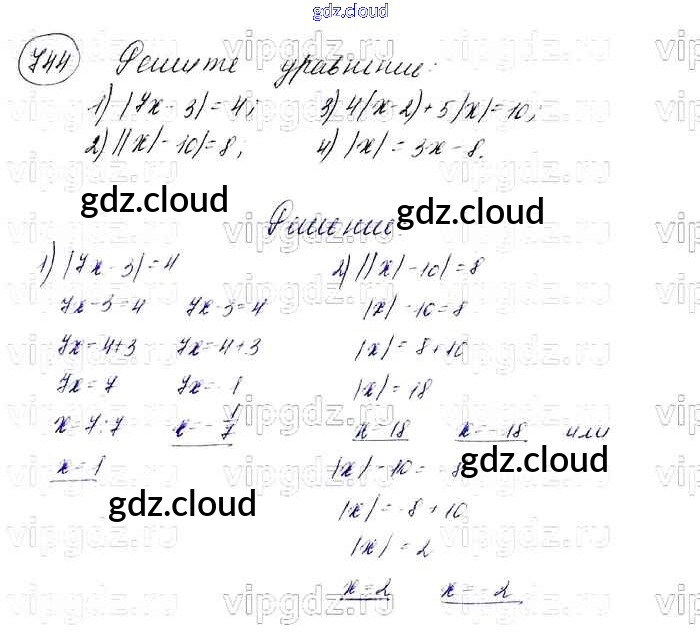 gdz.cloud
744 Решите уравнение:
1) |7x - 3| = 4; 3) 4(x-2) + 5|x| = 10;
2) ||x| - 10| = 8; 4) |x| = 3x - 8.
gdz.cloud gdz.cloud
Решение:
1) |7x - 3| = 4 2) ||x| - 10| = 8
7x - 3 = 4 7x - 3 = 4 |x| - 10 = 8
7x = 4+3 7x = 4+3 |x| = 8 + 10
7x = 7 7x = - 1 |x| = 18
x = 7:7 x = - 1/7 x = 18 x = - 18 или
x = 1 |x| - 10 = - 8
gdz.cloud gdz.cloud
|x| = -8 + 10
|x| = 2
x = 2 x = - 2
gdz.cloud
vipgdz.ru